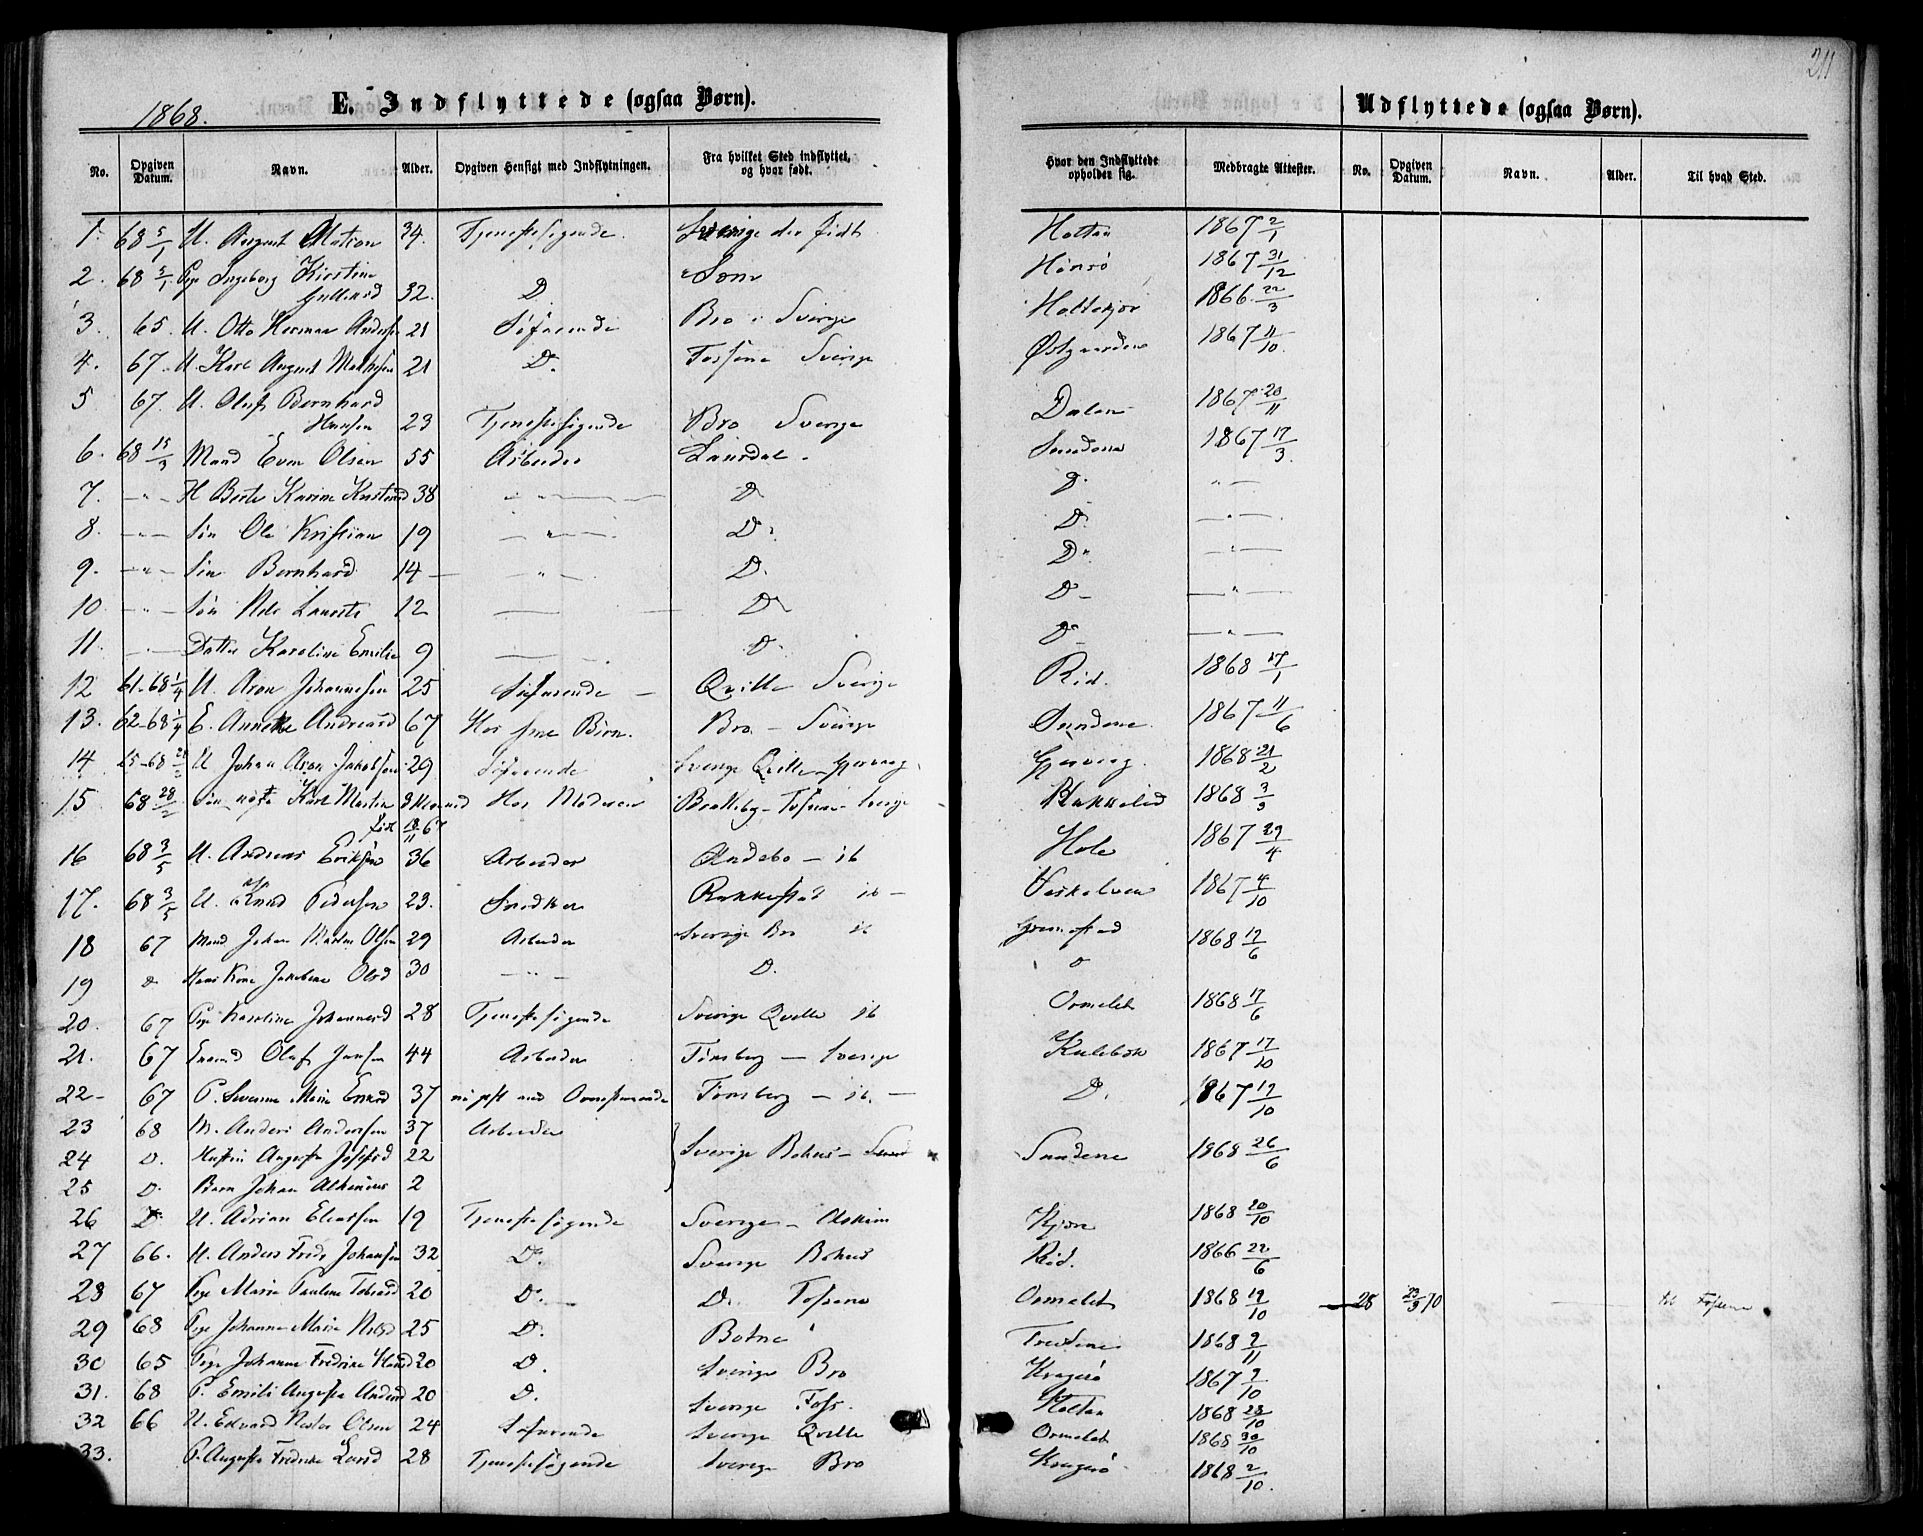 211
1868.
E. Indflyttede (ogsaa Børn).
Udflyttede (ogsaa Børn).
No. Opgiven Datum. Navn. Alder. Opgiven Hensigt med Indflytningen. Fra hvilket Sted indflyttet, og hvor født. Hvor den Indflyttede opholder sig. Medbragte Attester. No. Opgiven Datum. Navn. Alder. Til hvad Sted.
1. 68 5/1 U. August 34. Tjenestesøgende. Sverige der født Holtan 1867 2/1
2. 68 5/1 Pge Ingeborg Kirstine
Gulliksd 32. D Sem Hønsø 1867 31/12
3. 65. U. Otto Herman Andersen 21 Søfarende Bro i Sverige Holtekjær 1866 22/3
4. 67 U. Karl August Mathisen 21 D. Fossene Sverige Østgaarden 1867 11/10.
5 67. U. Oluf Bernhard
Hansen 23 Tjenestesøgende Bro Sverige Dalen 1867 20/11
6. 68 15/3 Mand Even Olsen 55 Arbeider Laurdal. Sundene 1867 17/3.
7. -"- H Berte Karine Knutsd 38 -"- D D. -"-
8. -"- Søn Ole Kristian 19 -"- D. D. -"-
9. -"- Søn Bernhard 14 -"- D. D. -"-
10. -"- Søn Nils Laurits 12 — D D -"-
11. -"- Datter Karoline Emilie 9 — D. D -"-
12 61-68 1/4 U. Aron Johannesen 25 Søfarende Qville Sverige Rød. 1868 17/1
13. 62-68 1/4 E. Annette Andreasd 67 Hos sine Børn. Bro - Sverige Sundene 1867 11/6
14 25-68 U Johan Aron Jakobsen 29 Søfarende Sverige Qville 1868 21/2
15 68 28/2 Søn Karl Martin 3 Hos Moderen Sverige Bakkelid 1868 3/3
født 18/11 67
16 68 3/5 U. Andreas Eriksen 36 Arbeider Andebo - ib Hole 1867 29/4
17. 68 3/5 U. Knud Pedersen 23. Snedker Rakkestad ib - 1867 4/10
18 67 Mand Johan Martin Olsen 29 Arbeider Sverige Bro ib 1868 12/6
19 D Hans Kone Jakobine Olsd 30 -"- D. D
20. 67 Pge Karoline Johannesd 28 Tjenestesøgende Sverige Qville ib Ormelet 1868 17/6
21. 67 Olaf Jansen 44 Arbeider Tønsberg - Sverige 1867 17/10
22- 67 P. Severine Marie Ensrd 37 med Ovenstaaende Tønsberg - ib. - D. 1867 17/10
23 68 M. Anders Andersen 37 Arbeider
24 D. Hustru Augusta Josefsd 22 Sverige Bohus - Sundene 1868 26/6
25 D. Barn Johan Athanius 2
26 D U. Adrian Eliassen 19 Tjenestesøgende Sverige - Askim Kjøre 1868 20/10
27 66. U. Anders Fredr Johansen 32 D. Sverige Bohus Rød. 1866 22/6
28 67 Pge Maria Pauline Tobiasd 20 D. D. Fossene Ormelet 1868 12/10 — 28 23/9 70 — til Fossene
29 68 Pge Johanne Marie Nilsd 25 D. Botne 1868 9/11
30 65 Pge Johanne Fredrikke Hansd 20 D. Sverige Bro Kragerø 1867 9/10
31. 68 P. Emili Augusta Andersd 20 D. Sverige Foss. Holtan 1868 28/10
32 66 U. Edvard Nestor Olsen 24 Søfarende Sverige Qville Ormelet 1868 30/10
33. P. Augusta Fredrikke Lund 28 Tjenestesøgende Sverige Bro Kragerø 1868 2/10.